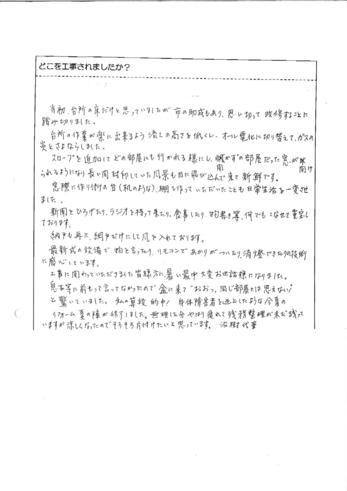 どこを工事されましたか？
当初、台所の床だけと思っていましたが 市の助成もあり、思い切って 改修することに
踏み切りました。
台所の作業が楽に出来るよう 流しの高さを低くし、オール電化に切り替えて、ガスの
炎とさよならしました。
スロープを追加してどの部屋にも行かれる様にし、開かずの部屋だった窓が開け
られるようになり長い間
見ていた風景も目に飛び込んで来て新鮮です。
窓際に作り付の台(机のような)、棚を作っていただいたことも日常生活を一変させ
ました。
新聞をひろげたり、ラジオを持って来たり、食事したり 何でもこなせて重宝し
ております。
網戸も入れ、網戸だけにして風を入れております。
最新式の設備で
リモコンであかりがついたり、消燈できたり
技術
に感心しています。
工事に関わっていただきました皆様方に、暑い最中大変お世話様になりました。
息子等に前もって言ってなかったので
来て"おおっ、同じ部屋とは思えない"
と驚いていました。
身体障害者を
したような今夏の
リフォーム
残務整理が未だ残って
いますが涼しくなったのでそろそろ片付けたいと思っています。
代筆